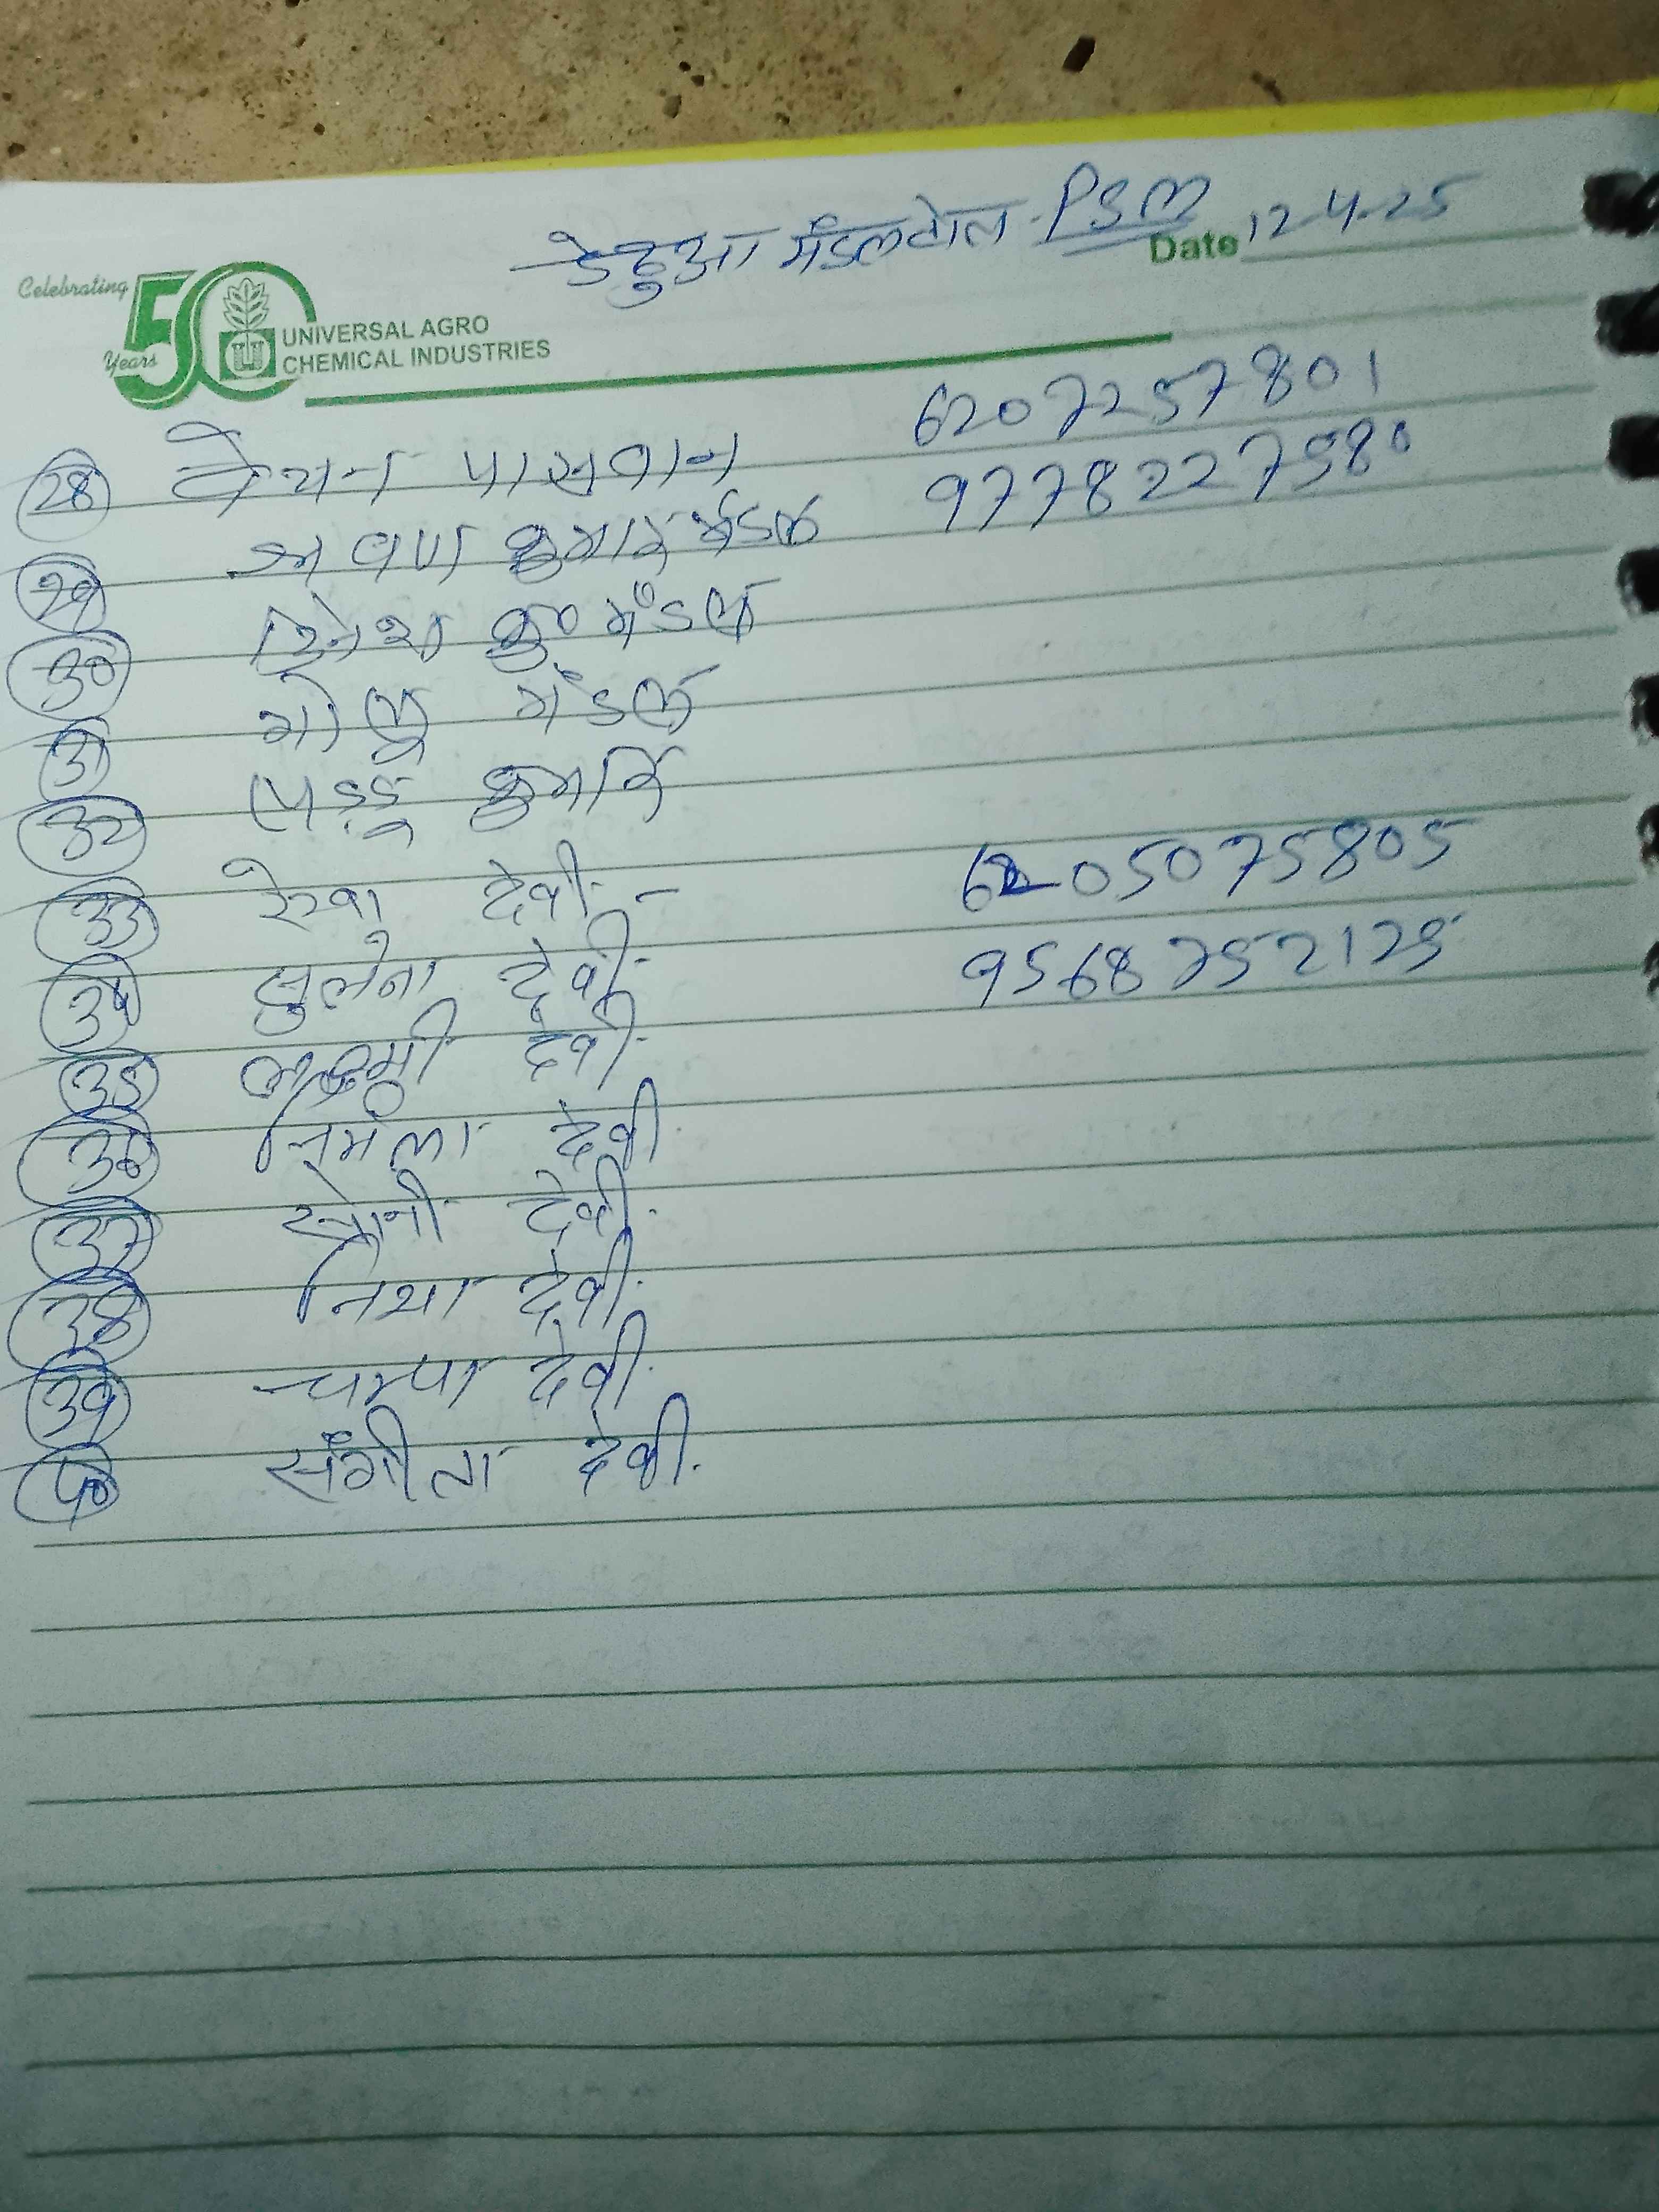 डेहुआ मंडलटोल PSM
Date 12-4-25
Celebrating 50 Years
UNIVERSAL AGRO
CHEMICAL INDUSTRIES
28 पासवान 6207257801
29 श्रवण कुमार मंडल 9778227580
30 दिनेश कु० मंडल
31 गोलू मंडल
32 कुमार
33 रेखा देवी - 6205075805
34 सुलेना देवी 9568752125
35 लक्ष्मी देवी
36 निर्मला देवी
37 देवी
38 देवी
39 चम्पा देवी
40 संगीता देवी